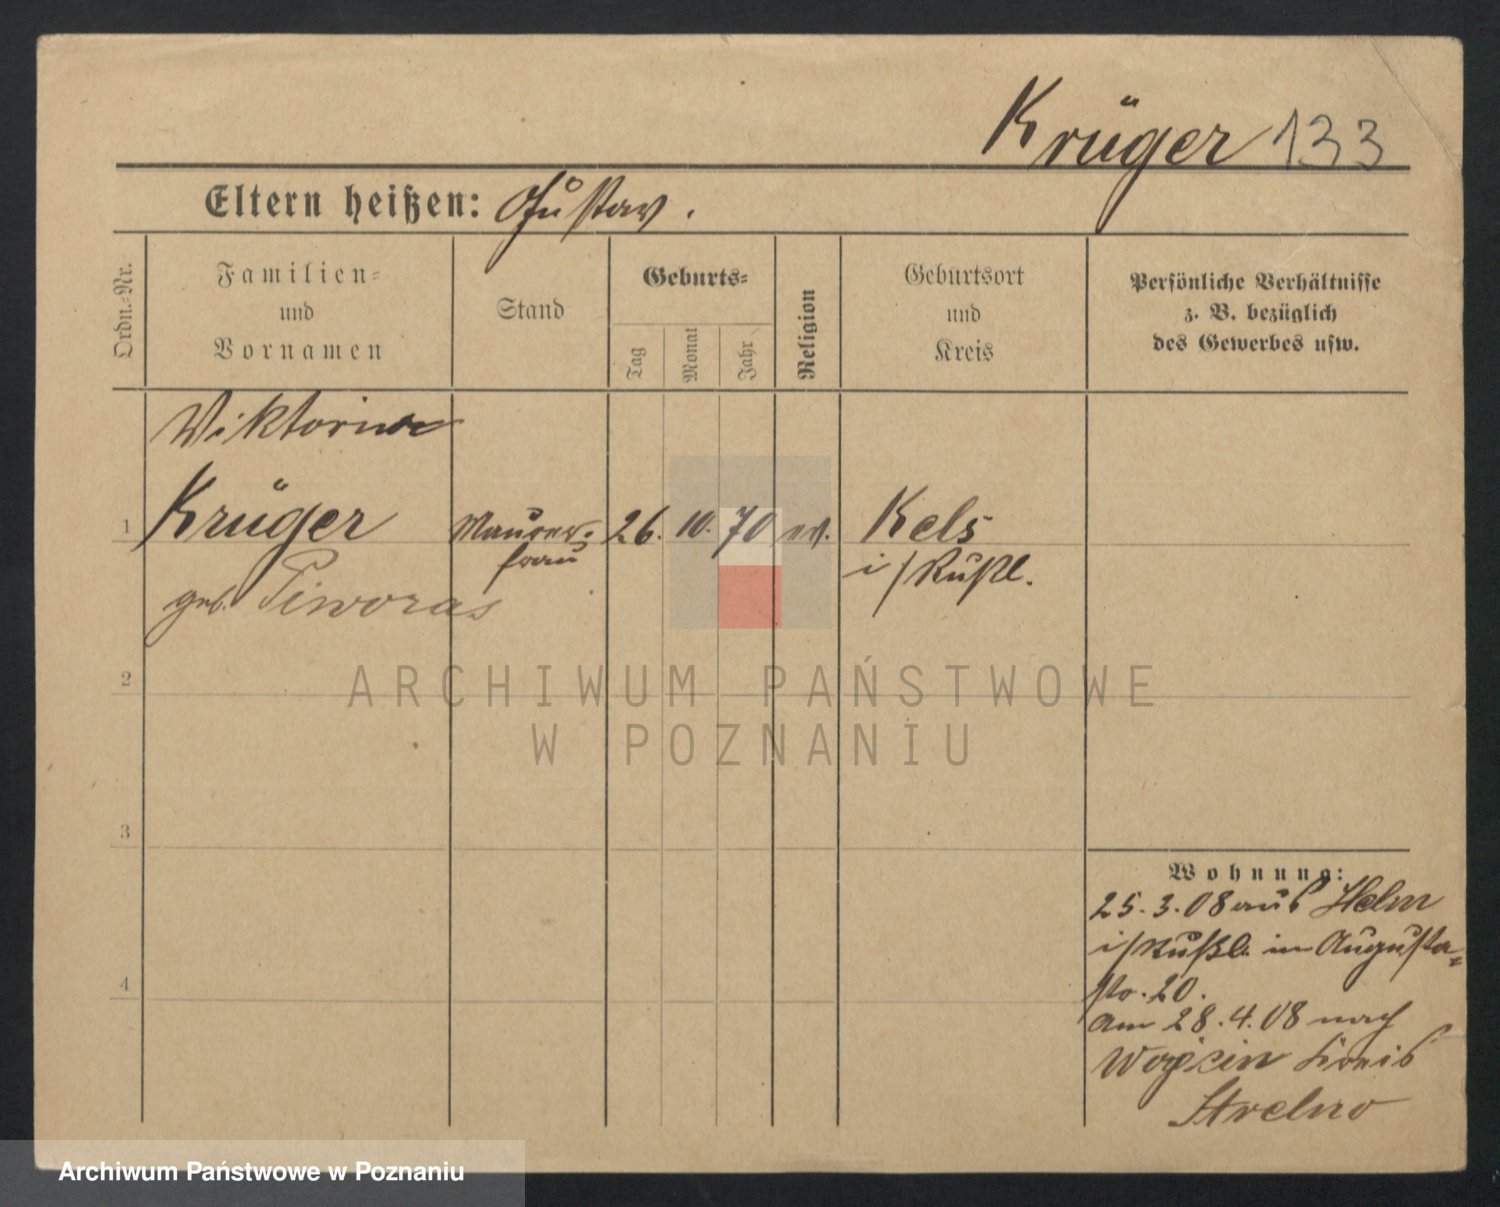 Krüger 133
Eltern heißen: Gustav.
Ordn.-Nr.
Familien-
und
Vornamen
Stand
Geburts-
Tag
Monat
Jahr
Religion
Geburtsort
und
Kreis
Persönliche Verhältnisse
z. B. bezüglich
des Gewerbes usw.
Viktoria
1 Krüger Maurer- 26. 10. 70 ev. Kels
frau i/Rußl.
geb. Piworas
2
3
4
Wohnung:
25.3.08 aus Helm
i/Rußl. in Augusta-
str. 20.
am 28.4.08 nach
Kreis
Strelno
ARCHIWUM PAŃSTWOWE
W POZNANIU
Archiwum Państwowe w Poznaniu